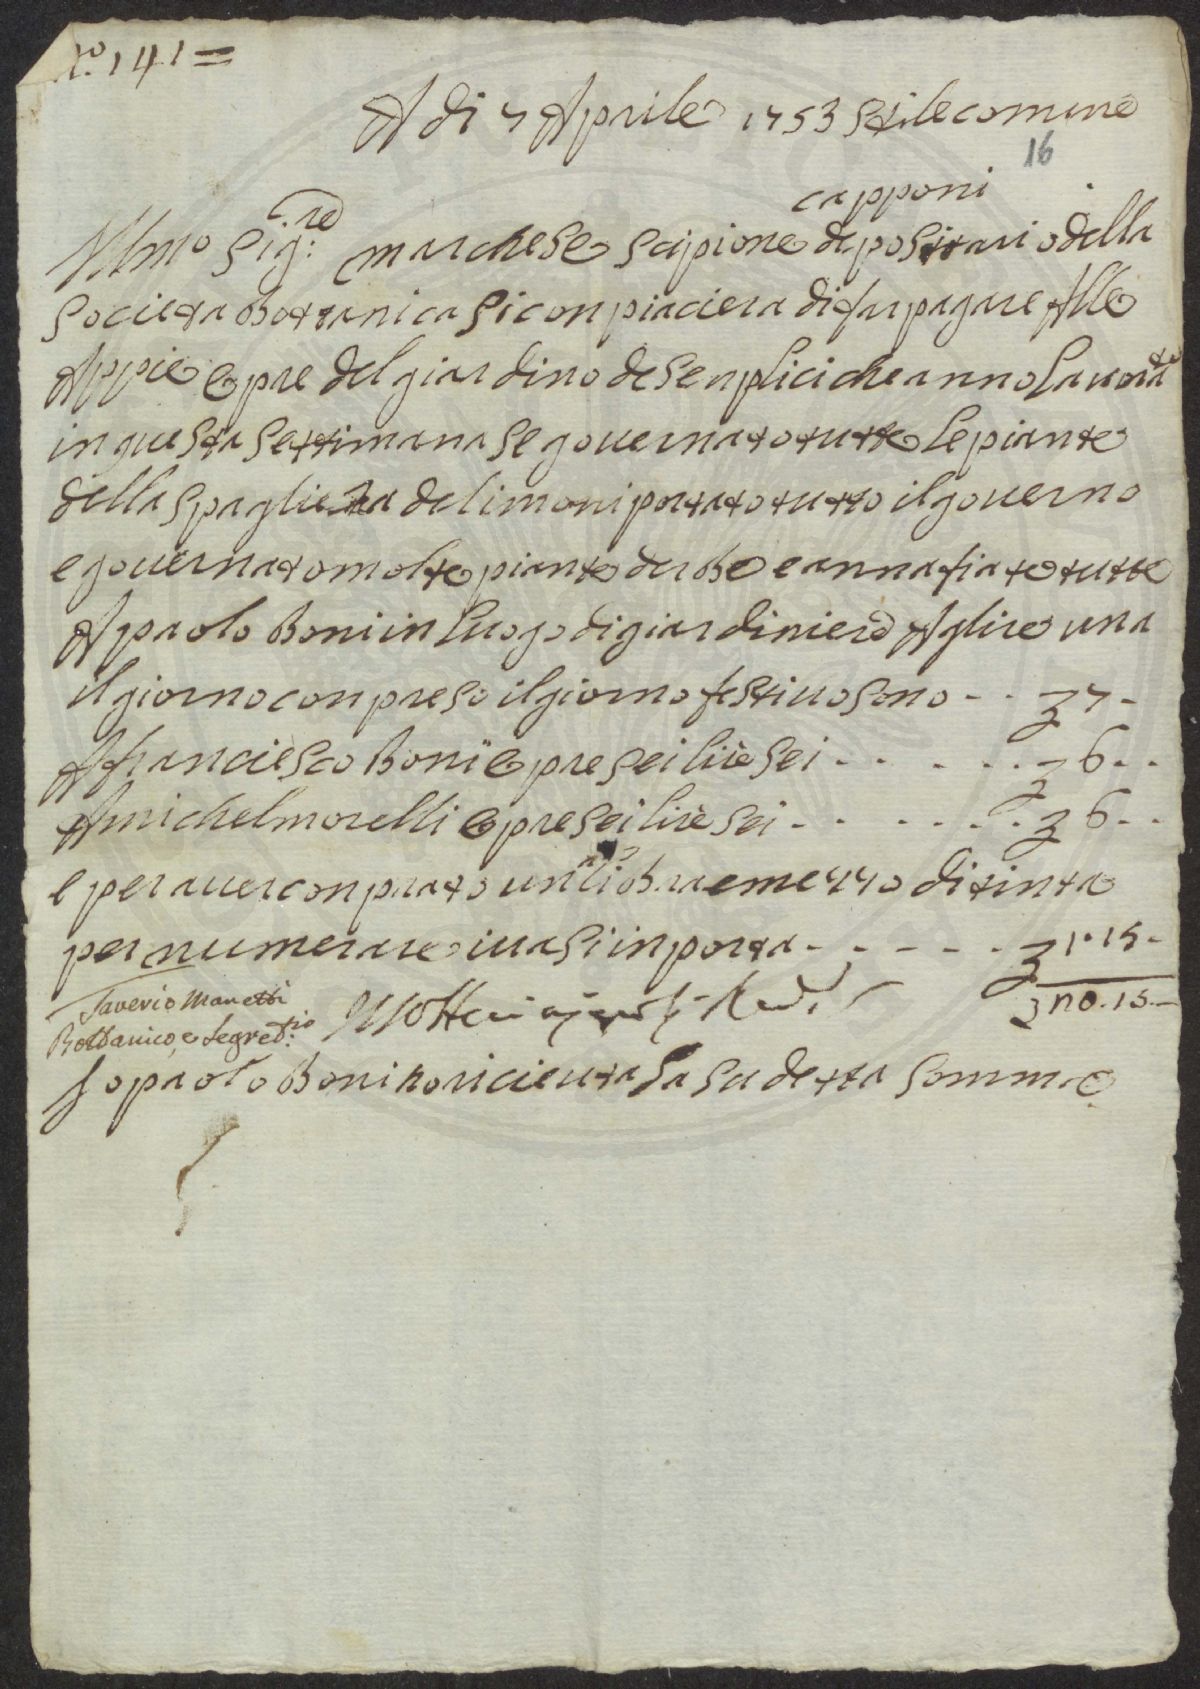 N.o 141=
A di 7 Aprile 1753 Stile comune
16
capponi
Illmo Sig:re marchese Scipione depositario della
Societa Bottanica Si conpiaciera di far pagare Alle
Appie opre del giardino de Senplici che anno Lauorato
in questa Settimana Se gouernato tutte le piante
della Spagliera de limoni portato tutto il gouerno
e gouernato molte piante derbe e annafiate tutte
A paolo Boni in luogo di giardiniero A lire una
il giorno conpreso il giorno festiuo sono - - ʒ 7 -
A franciesco Boni opre sei lire sei - - - - - - ʒ 6 - -
A michel morelli opre sei lire sei - - - - - - ʒ 6 - -
e per auer conprato una libra e mezzo di tinta
per numerare i uasi inporta - - - - - ʒ 1.15 -
ʒ 20.15 -
Saverio Manetti
Bottanico, e Segret:rio
Io paolo Boni ho riceuta La Su detta Somma